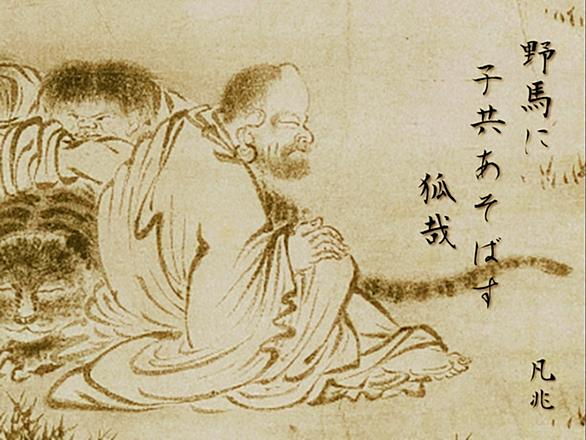 野馬に
子共あそばす
狐哉
凡兆